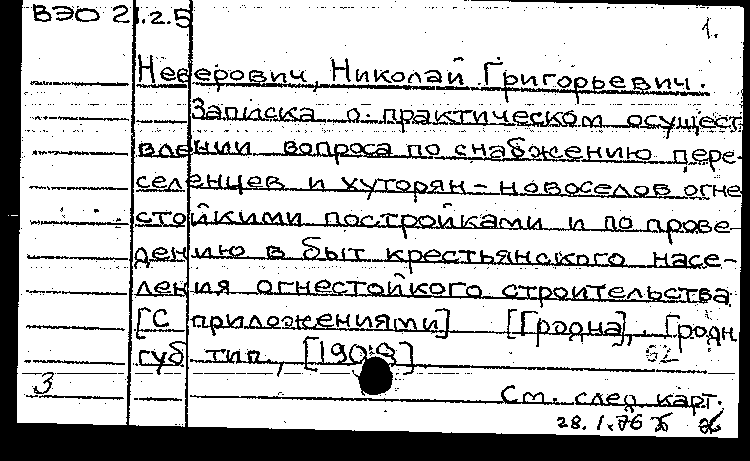 ВЭО 21.2.5
1.
Неверович, Николай Григорьевич.
Записка о практическом осущест
влении вопроса по снабжению пере-
селенцев и хуторян-новоселов огне
стойкими постройками и по прове-
дению в быт крестьянского насе-
ления огнестойкого строительства
[С приложениями] [Гродна], Гродн
губ тип., [1908]
62
3
См. след карт.
28.1.76